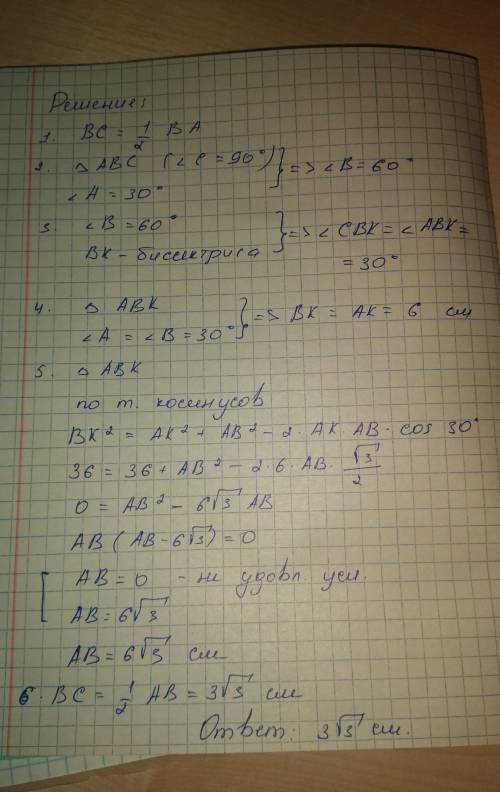 Решение:
1. BC = 1/2 BA
2. △ ABC (∠C = 90°) } => ∠B = 60°
∠A = 30°
3. ∠B = 60° } => ∠CBK = ∠ABK =
BK - биссектриса = 30°
4. △ ABK } => BK = AK = 6 см
∠A = ∠B = 30°
5. △ ABK
по т. косинусов
BK² = AK² + AB² - 2·AK·AB·cos 30°
36 = 36 + AB² - 2·6·AB·√3/2
0 = AB² - 6√3 AB
AB (AB - 6√3) = 0
[ AB = 0 - не удовл. усл.
AB = 6√3
AB = 6√3 см
6. BC = 1/2 AB = 3√3 см
Ответ: 3√3 см.